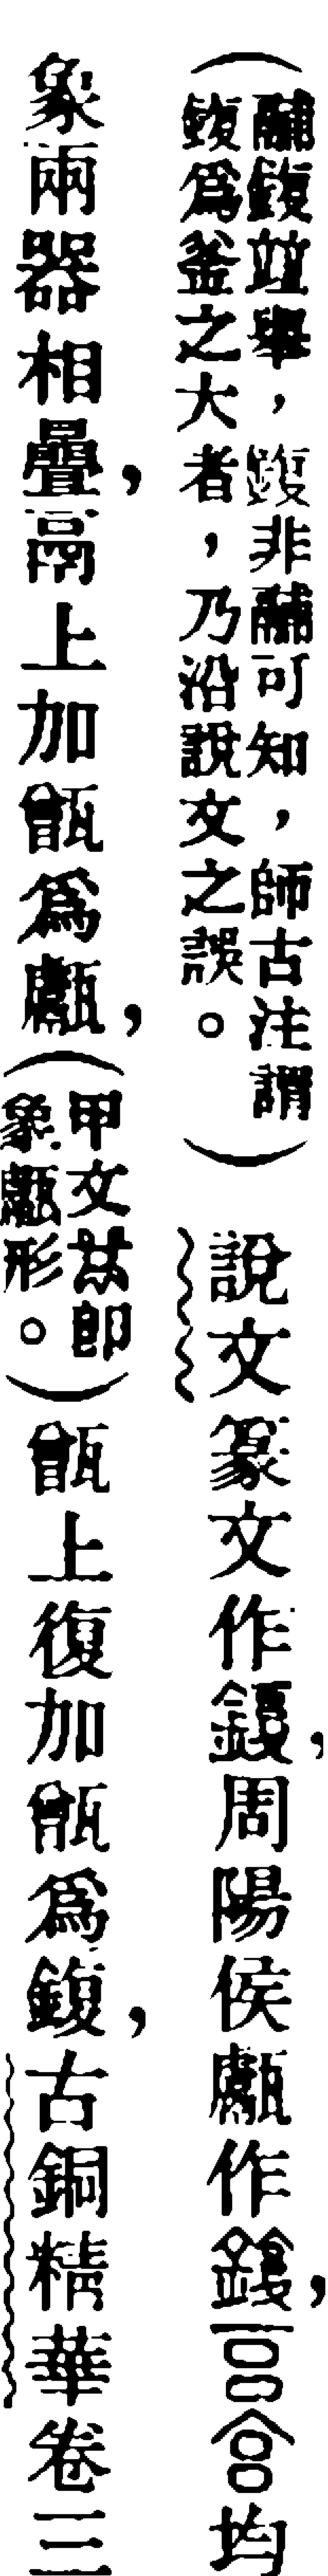 （鬴鍑竝舉，鍑非鬴可知，師古注謂
鍑爲釜之大者，乃沿說文之誤。）
說文篆文作鍑，周陽侯甗作鍑，均
象兩器相疊，鬲上加甑爲甗，
（甲文即
象甗形。）
甑上復加甑爲鍑，古銅精華卷三